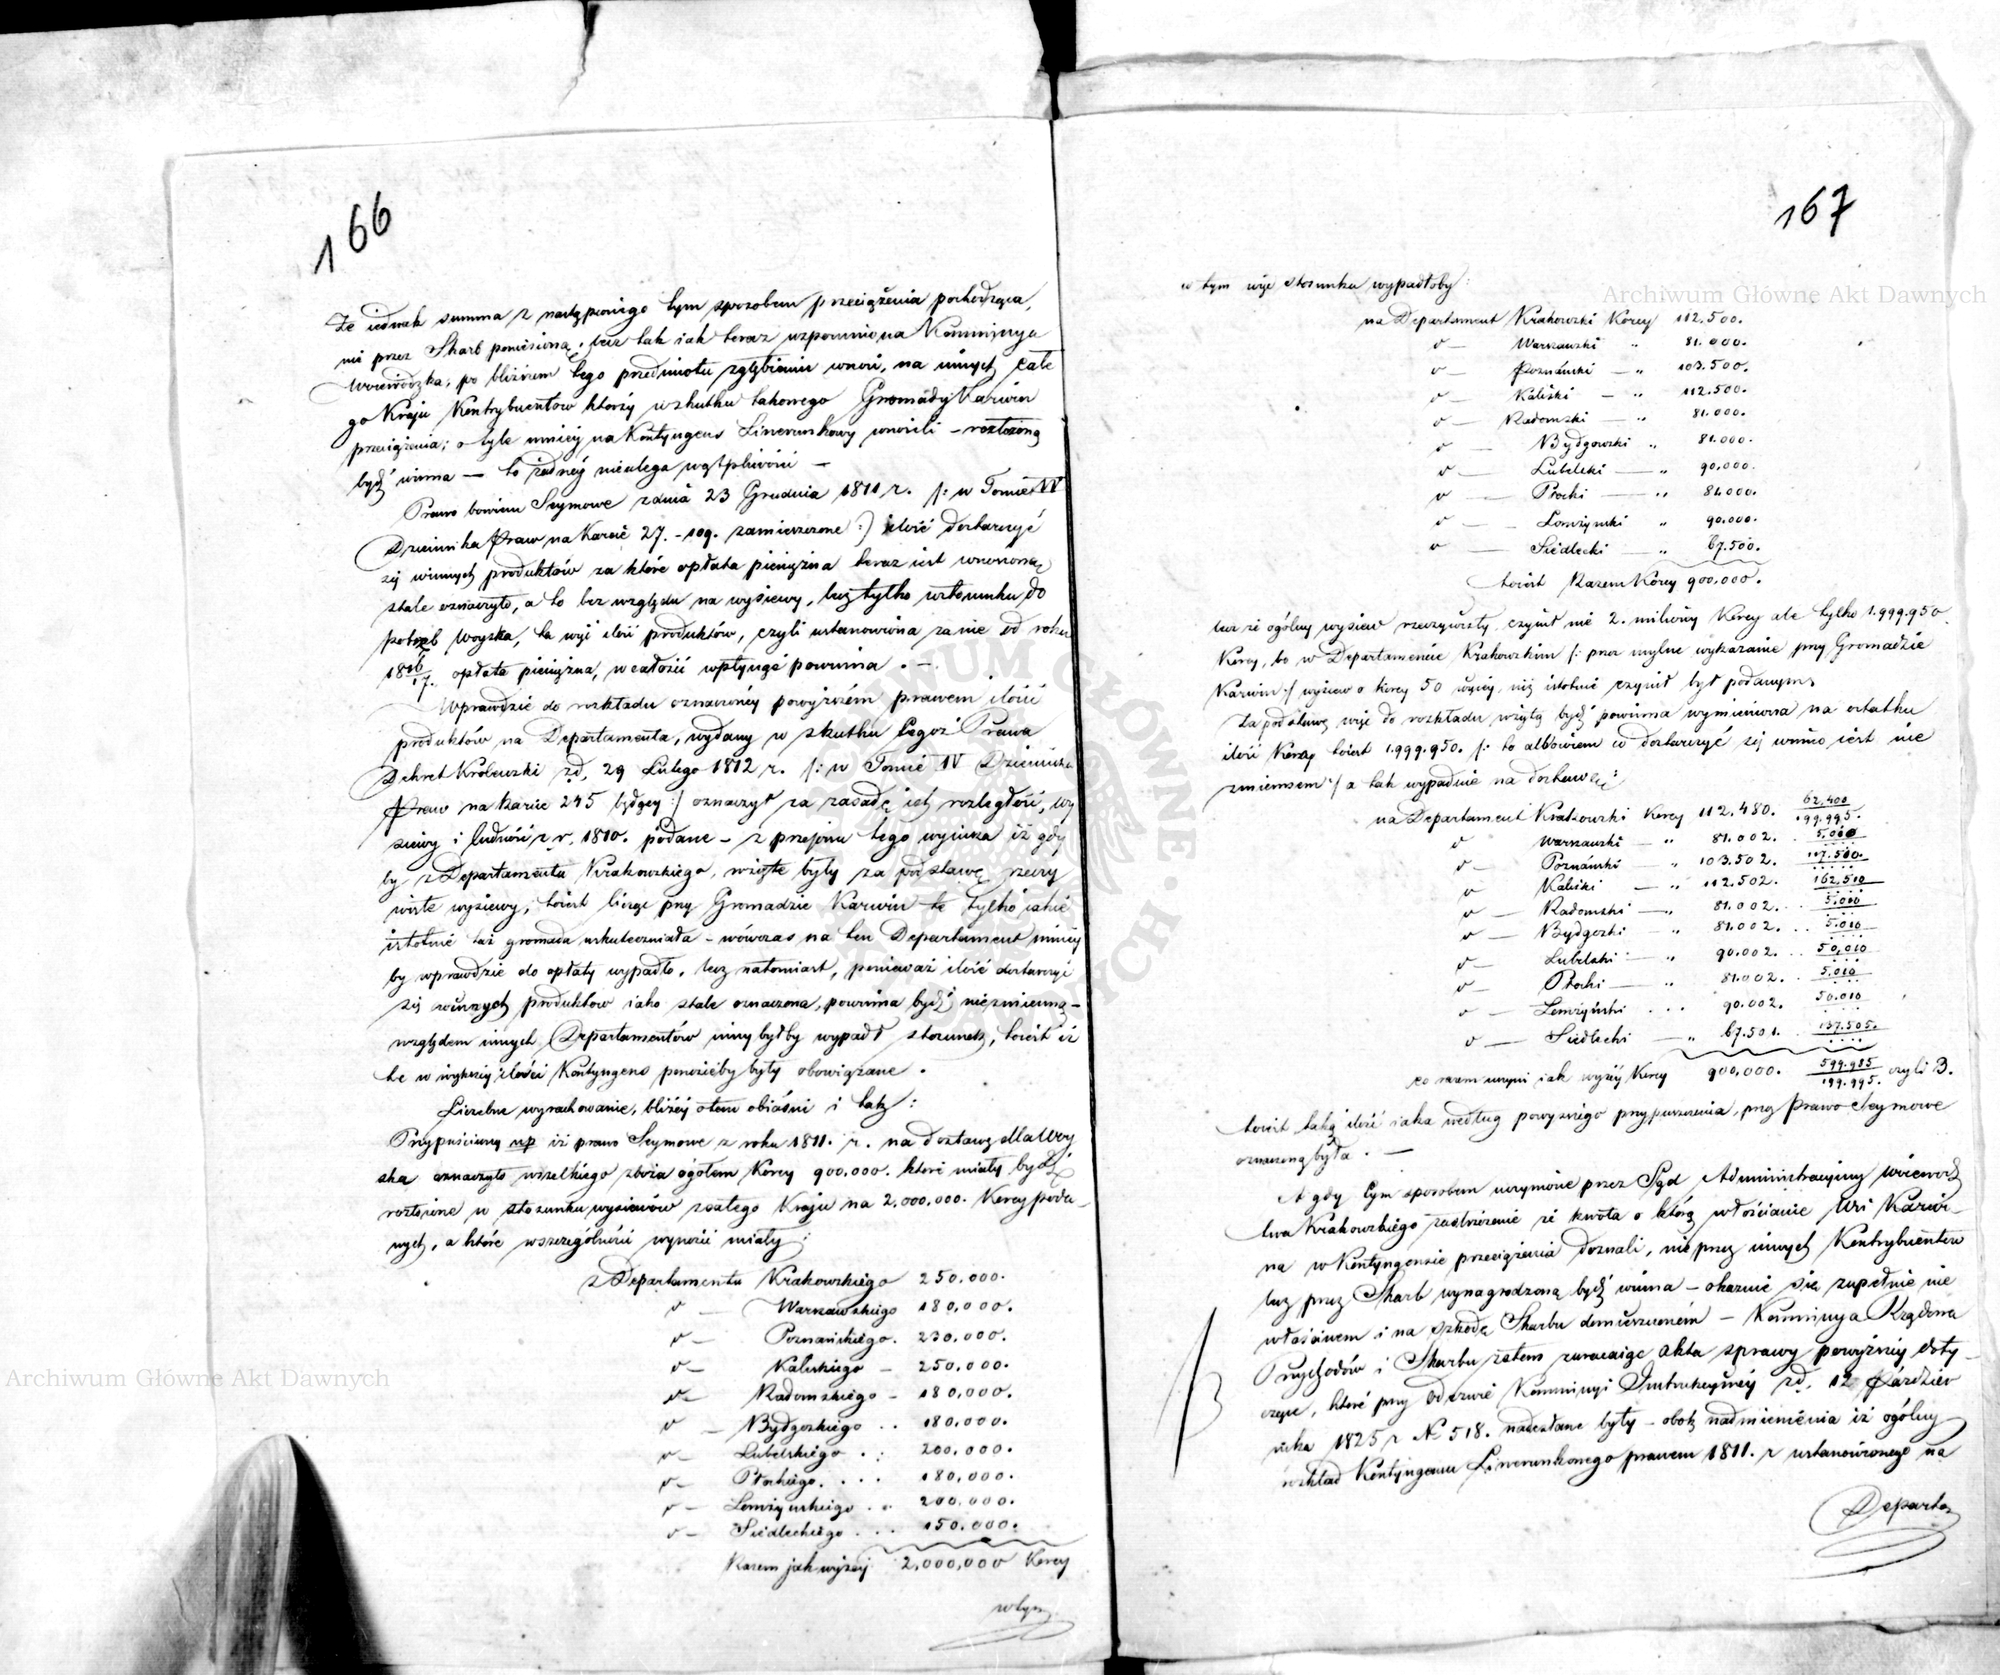 166
Że iednak summa z nastąpionego tym sposobem przeciążenia pochodząca,
nie przez Skarb poniesioną, lecz tak iak teraz wspomniona Kommissya
Woiewódzka, po bliższem tego przedmiotu zgłębieniu wnosi, na innych całe
go Kraju Kontrybuentów którzy w skutku takowego Gromady Karwin
przeciążenia, o tyle mniéy na Kontyngens Liwerunkowy wnosili – rozłożoną
bydź winna — to żadnéy nieulega wątpliwości —
Prawo bowiem Seymowe z dnia 23 Grudnia 1811 r. /: w Tomie IV
Dziennika Praw na Karcie 27. – 109. zamieszczone :/ ilość dostarczyć
się winnych produktów za które opłata pieniężna teraz iest wnoszoną
stale oznaczyło, a to bez względu na wysiewy, lecz tylko w stosunku do
potrzeb Woyska, ta więc ilość produktów, czyli ustanowiona za nie od roku
1816/17. opłata pieniężna, w całości wpłynąć powinna . —
Wprawdzie do rozkładu oznaczonéy powyższém prawem ilości
produktów na Departamenta, wydany w skutku tegoż Prawa
Dekret Królewski z d. 29 Lutego 1812 r. /: w Tomie IV Dziennika
Praw na karcie 245 będący :/ oznaczył za zasadę ich rozległość, wy
siewy i ludność z r. 1810. podane – z przepisu tego wynika iż gdy
by z Departamentu Krakowskiego, wzięte były za podstawę rzeczy
wiste wysiewy, toiest licząc przy Gromadzie Karwin te tylko iakie
istotnie taż gromada uskuteczniała – wówczas na ten Departament mniéy
by wprawdzie do opłaty wypadło, lecz natomiast, ponieważ ilość dostarczyć
się winnych produktów iako stale oznaczona, powinna bydź niezmienną –
względem innych Departamentów inny byłby wypadł stosunek, toiest iż
te w większéy ilości Kontyngens ponosićby były obowiązane .
Liczebne wyrachowanie, bliżéy otem obiaśni i tak :
Przypuścimy np iż prawo Seymowe z roku 1811. r. na dostawę dla Woy
ska oznaczyło wszelkiego zboża ogółem Korcy 900.000. które miały bydź
rozłożone w stosunku wysiewów z całego Kraju na 2.000.000. Korcy poda-
nych, a które w szczególności wynosić miały :
z Departamentu Krakowskiego 250.000.
d° — Warszawskiego 180,000.
d° — Poznańskiego . 230.000.
d° — Kaliskiego — 250.000.
d° — Radomskiego – 180,000.
d° — Bydgoskiego . . 180.000.
d° — Lubelskiego . : 200.000.
d° — Płockiego . . . 180,000.
d° — Łomżyńskiego . . 200.000.
d° — Siedleckiego . . . 150.000.
Razem jak wyżéy 2,000,000 Korcy
w tym
167
w tym więc stosunku wypadłoby :
na Departament Krakowski Korcy 112.500.
d° — Warszawski „ 81.000.
d° — Poznański — „ 103.500.
d° — Kaliski — „ 112.500.
d° — Radomski — „ 81.000.
d° — Bydgowski „ 81.000.
d° — Lubelski — „ 90.000.
d° — Płocki — „ 81.000.
d° — Łomżyński „ 90.000.
d° — Siedlecki — „ 67.500.
toiest Razem Korcy 900.000.
lecz że ogólny wysiew rzeczywisty czynił nie 2. miliony Korcy ale tylko 1.999.950.
Korcy, bo w Departamencie Krakowskim /: przez mylne wykazanie przy Gromadzie
Karwin :/ wysiew o korcy 50 więcéy, niż istotnie czynił był podanym
Za podstawę więc do rozkładu wziętą bydź powinna wymieniona na ostatku
ilość Korcy toiest 1.999.950. /: to albowiem co dostarczyć się winno iest nie
zmiennem :/ a tak wypadnie na dostawę :
na Departament Krakowski Korcy 112.480. 62,400 199.995.
d° Warszawski — „ 81.002. 5.010
d° — Poznański — „ 103.502. 107.510.
d° Kaliski — „ 112.502. 162,510
d° — Radomski — „ 81.002. . . 5.010
d° — Bydgoski — „ 81.002. . . 5.010
d° — Lubelski — „ 90.002. . . 50,010
d° — Płocki — „ 81.002. . . 5.010
d° — Łomżyński . . . 90.002. 50.010
d° — Siedlecki — „ 67.501. . 137.505.
co razem uczyni iak wyżéy Korcy 900,000. 599.985 199.995. czyli 3.
toiest taką ilość iaka według powyższego przypuszczenia, przez Prawo Seymowe
oznaczoną była . —
A gdy tym sposobem uczynione przez Sąd Administracyiny Woiewódz
twa Krakowskiego zastrzeżenie że kwota o którą włościanie Wsi Karwi-
na w Kontyngensie przeciążenia doznali, nie przez innych Kontrybuentów
lecz przez Skarb wynagrodzoną bydź winna – okazuie się zupełnie nie
właściwem i na szkodę Skarbu domieszczoném – Kommissya Rządowa
Przychodów i Skarbu zatem zwracaiąc akta sprawy powyższéy doty-
czące, które przy odezwie Kommissyi Instrukcyinéy z d. 12 Paździer
nika 1825 r N° 518. nadesłane były – obok nadmienienia iż ogólny
rozkład Kontyngensu Liwerunkowego prawem 1811. r ustanowionego na
Departa
Archiwum Główne Akt Dawnych
Archiwum Główne Akt Dawnych